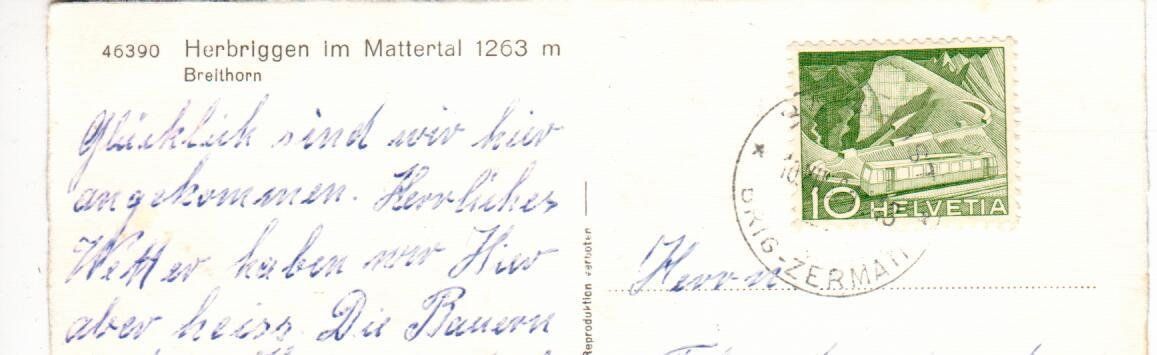 46390 Herbriggen im Mattertal 1263 m
Breithorn
Glücklich sind wir hier
angekommen. Herrliches
Wetter haben wir Hier
aber heiss. Die Bauern
Reproduktion verboten
10 HELVETIA
BRIG-ZERMATT
Herrn